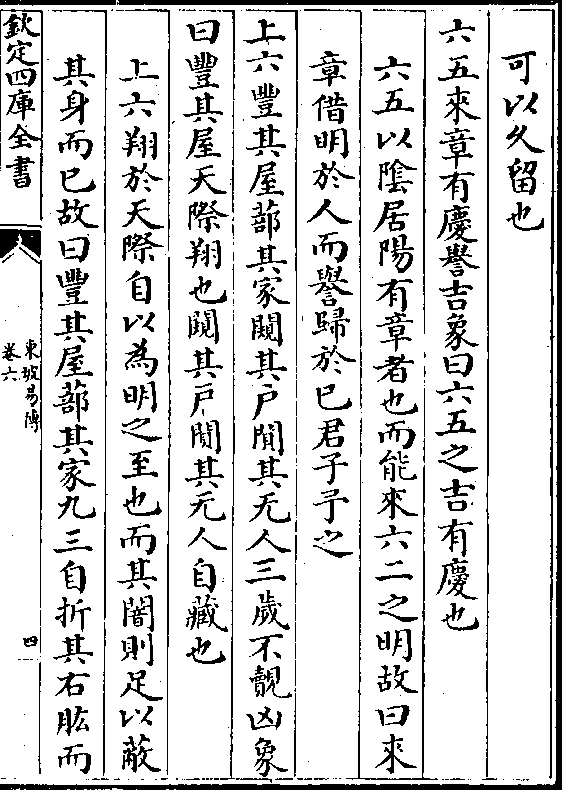 可以久留也
六五來章有慶譽吉象曰六五之吉有慶也
六五以陰居陽有章者也而能來六二之明故曰來
章借明於人而譽歸於已君子予之
上六豐其屋蔀其家闚其户闃其无人三歲不覿凶象
曰豐其屋天際翔也闚其戶闃其无人自藏也
上六翔於天際自以為明之至也而其闇則足以蔽
其身而已故曰豐其屋蔀其家九三自折其右肱而
欽定四庫全書
東坡易傳
卷六
四